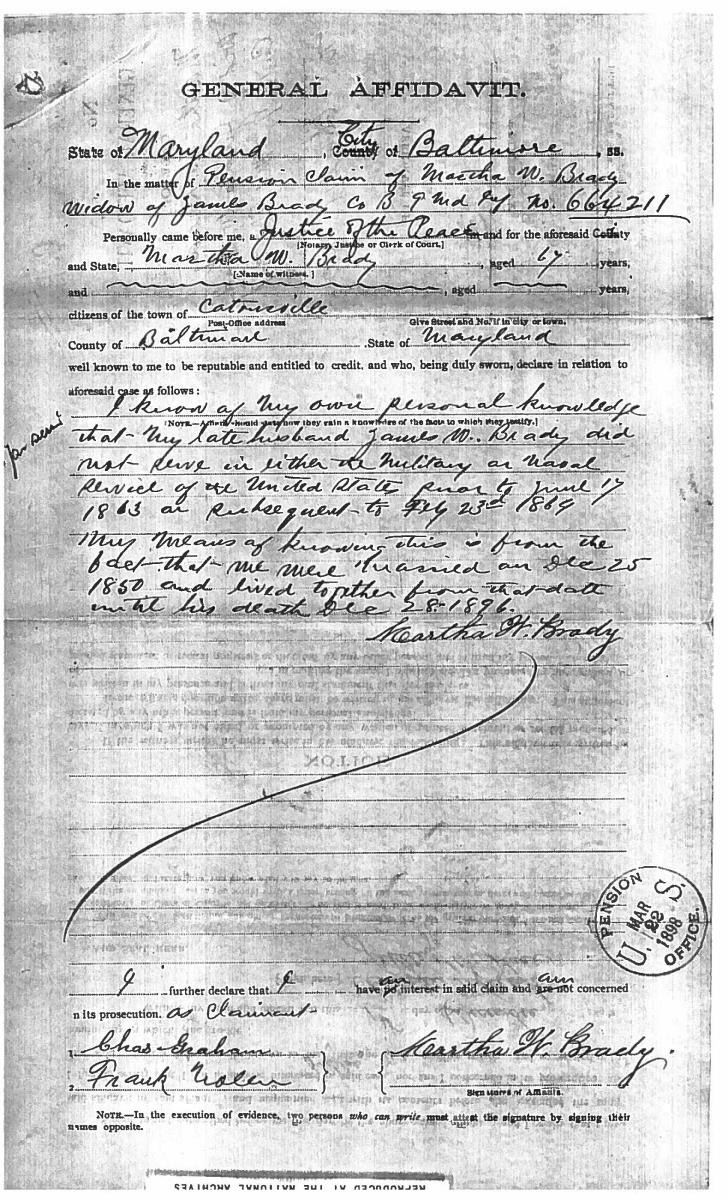 GENERAL AFFIDAVIT.
State of Maryland, City County of Baltimore, ss.
In the matter of Pension Claim of Martha W. Brady
widow of James Brady Co B 9 Md No. 664211
Personally came before me, a Justice of the Peace in and for the aforesaid County
[Notary, Justice or Clerk of Court.]
and State, Martha W. Brady, aged 67 years,
[Name of witness.]
and , aged years,
citizens of the town of Catonsville
Post-Office address Give Street and No. if in city or town.
County of Baltimore, State of Maryland
well known to me to be reputable and entitled to credit, and who, being duly sworn, declare in relation to
aforesaid case as follows:
I know of my own personal knowledge
[NOTE.—Affiants should state how they gain a knowledge of the facts to which they testify.]
that my late husband James W. Brady did
not serve in either the Military or Naval
Service of the United States prior to June 17
1863 or subsequent to Feby 23rd 1864
My means of knowing this is from the
fact that we were married on Dec 25
1850 and lived together from that date
until his death Dec 28-1896.
Martha W. Brady
PENSION OFFICE.
U. S.
MAR
22
1898
I further declare that I have no an interest in said claim and are not am concerned
n its prosecution. as Claimant
1. Chas Graham
Martha W. Brady.
2. Frank Nolen
Signatures of Affiants.
NOTE.—In the execution of evidence, two persons who can write must attest the signature by signing their
names opposite.
REPRODUCED AT THE NATIONAL ARCHIVES